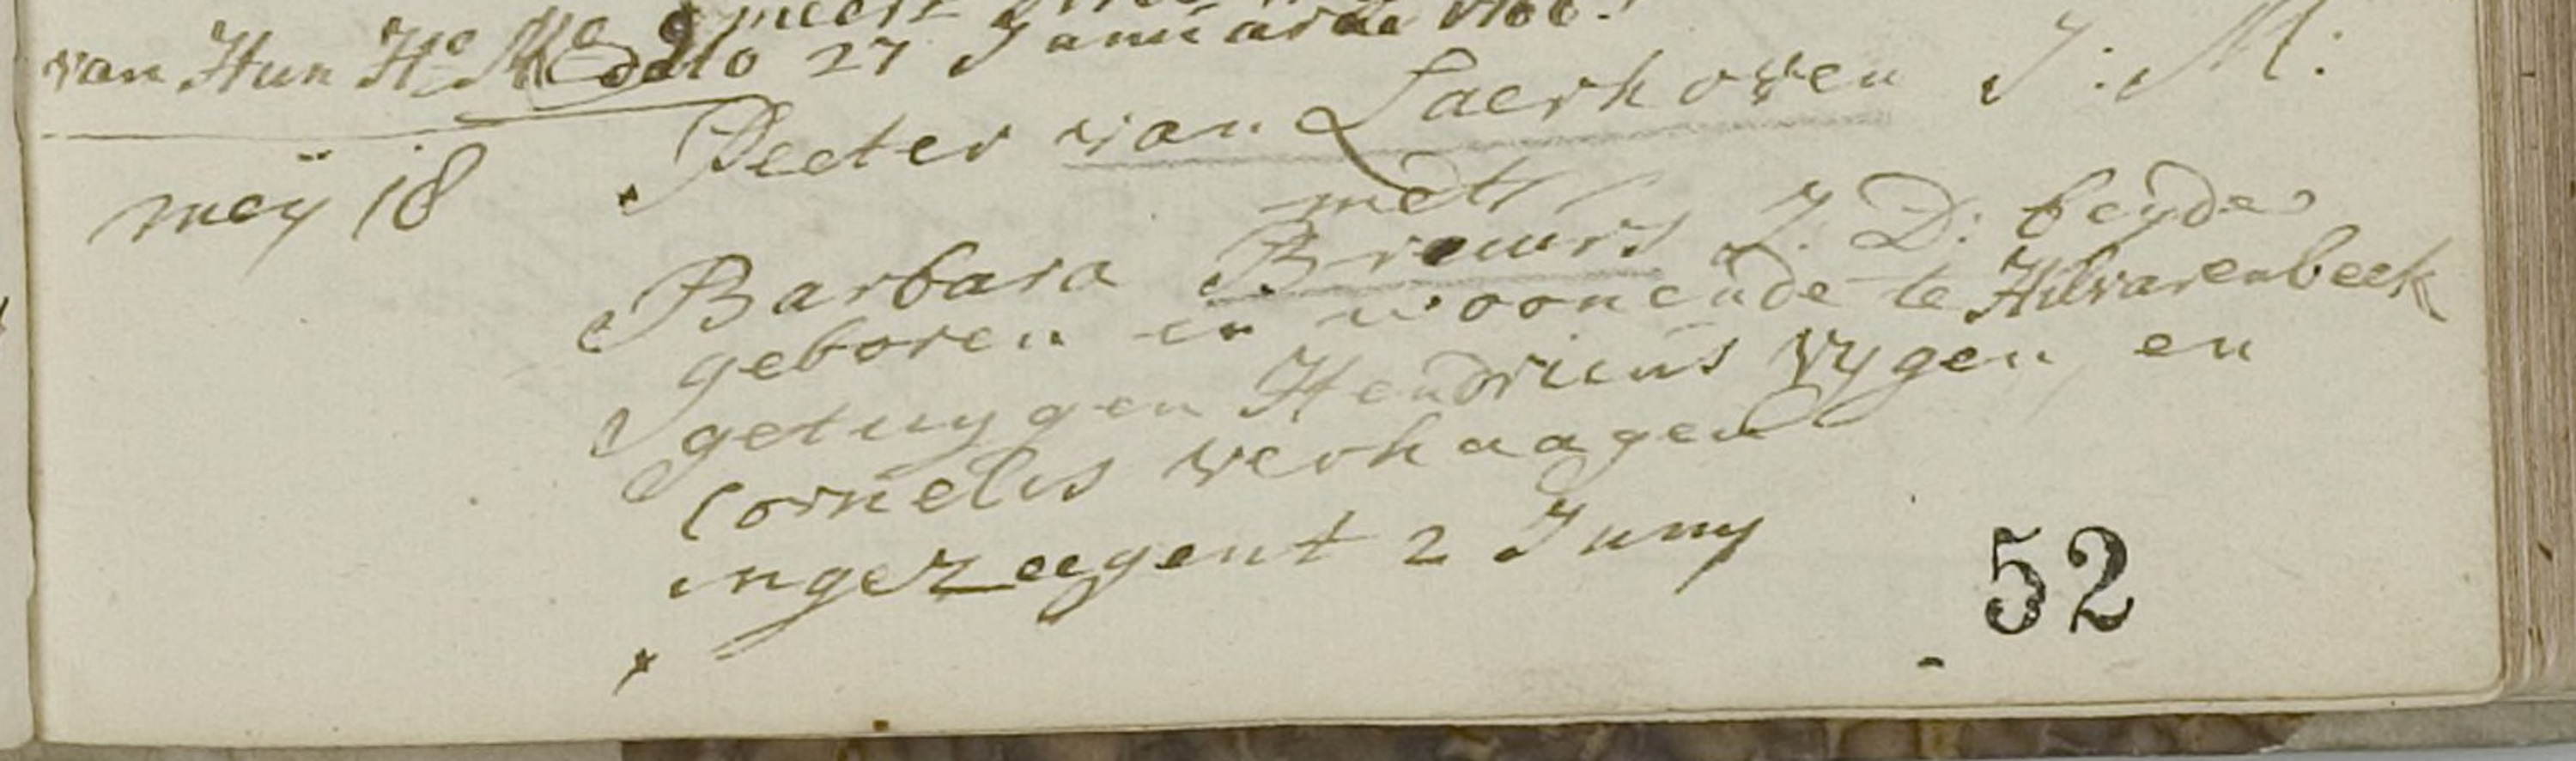 van Hun Ho Mo dd 27 Januarii
meij 18 Peeter van Laerhoven J: M:
met
Barbara Breuurs J. D: beyde
geboren en woonende te Hilvarenbeek
getuygen Hendricus Vygen, en
Cornelis verhaagen
ingezeegent 2 Juny
52